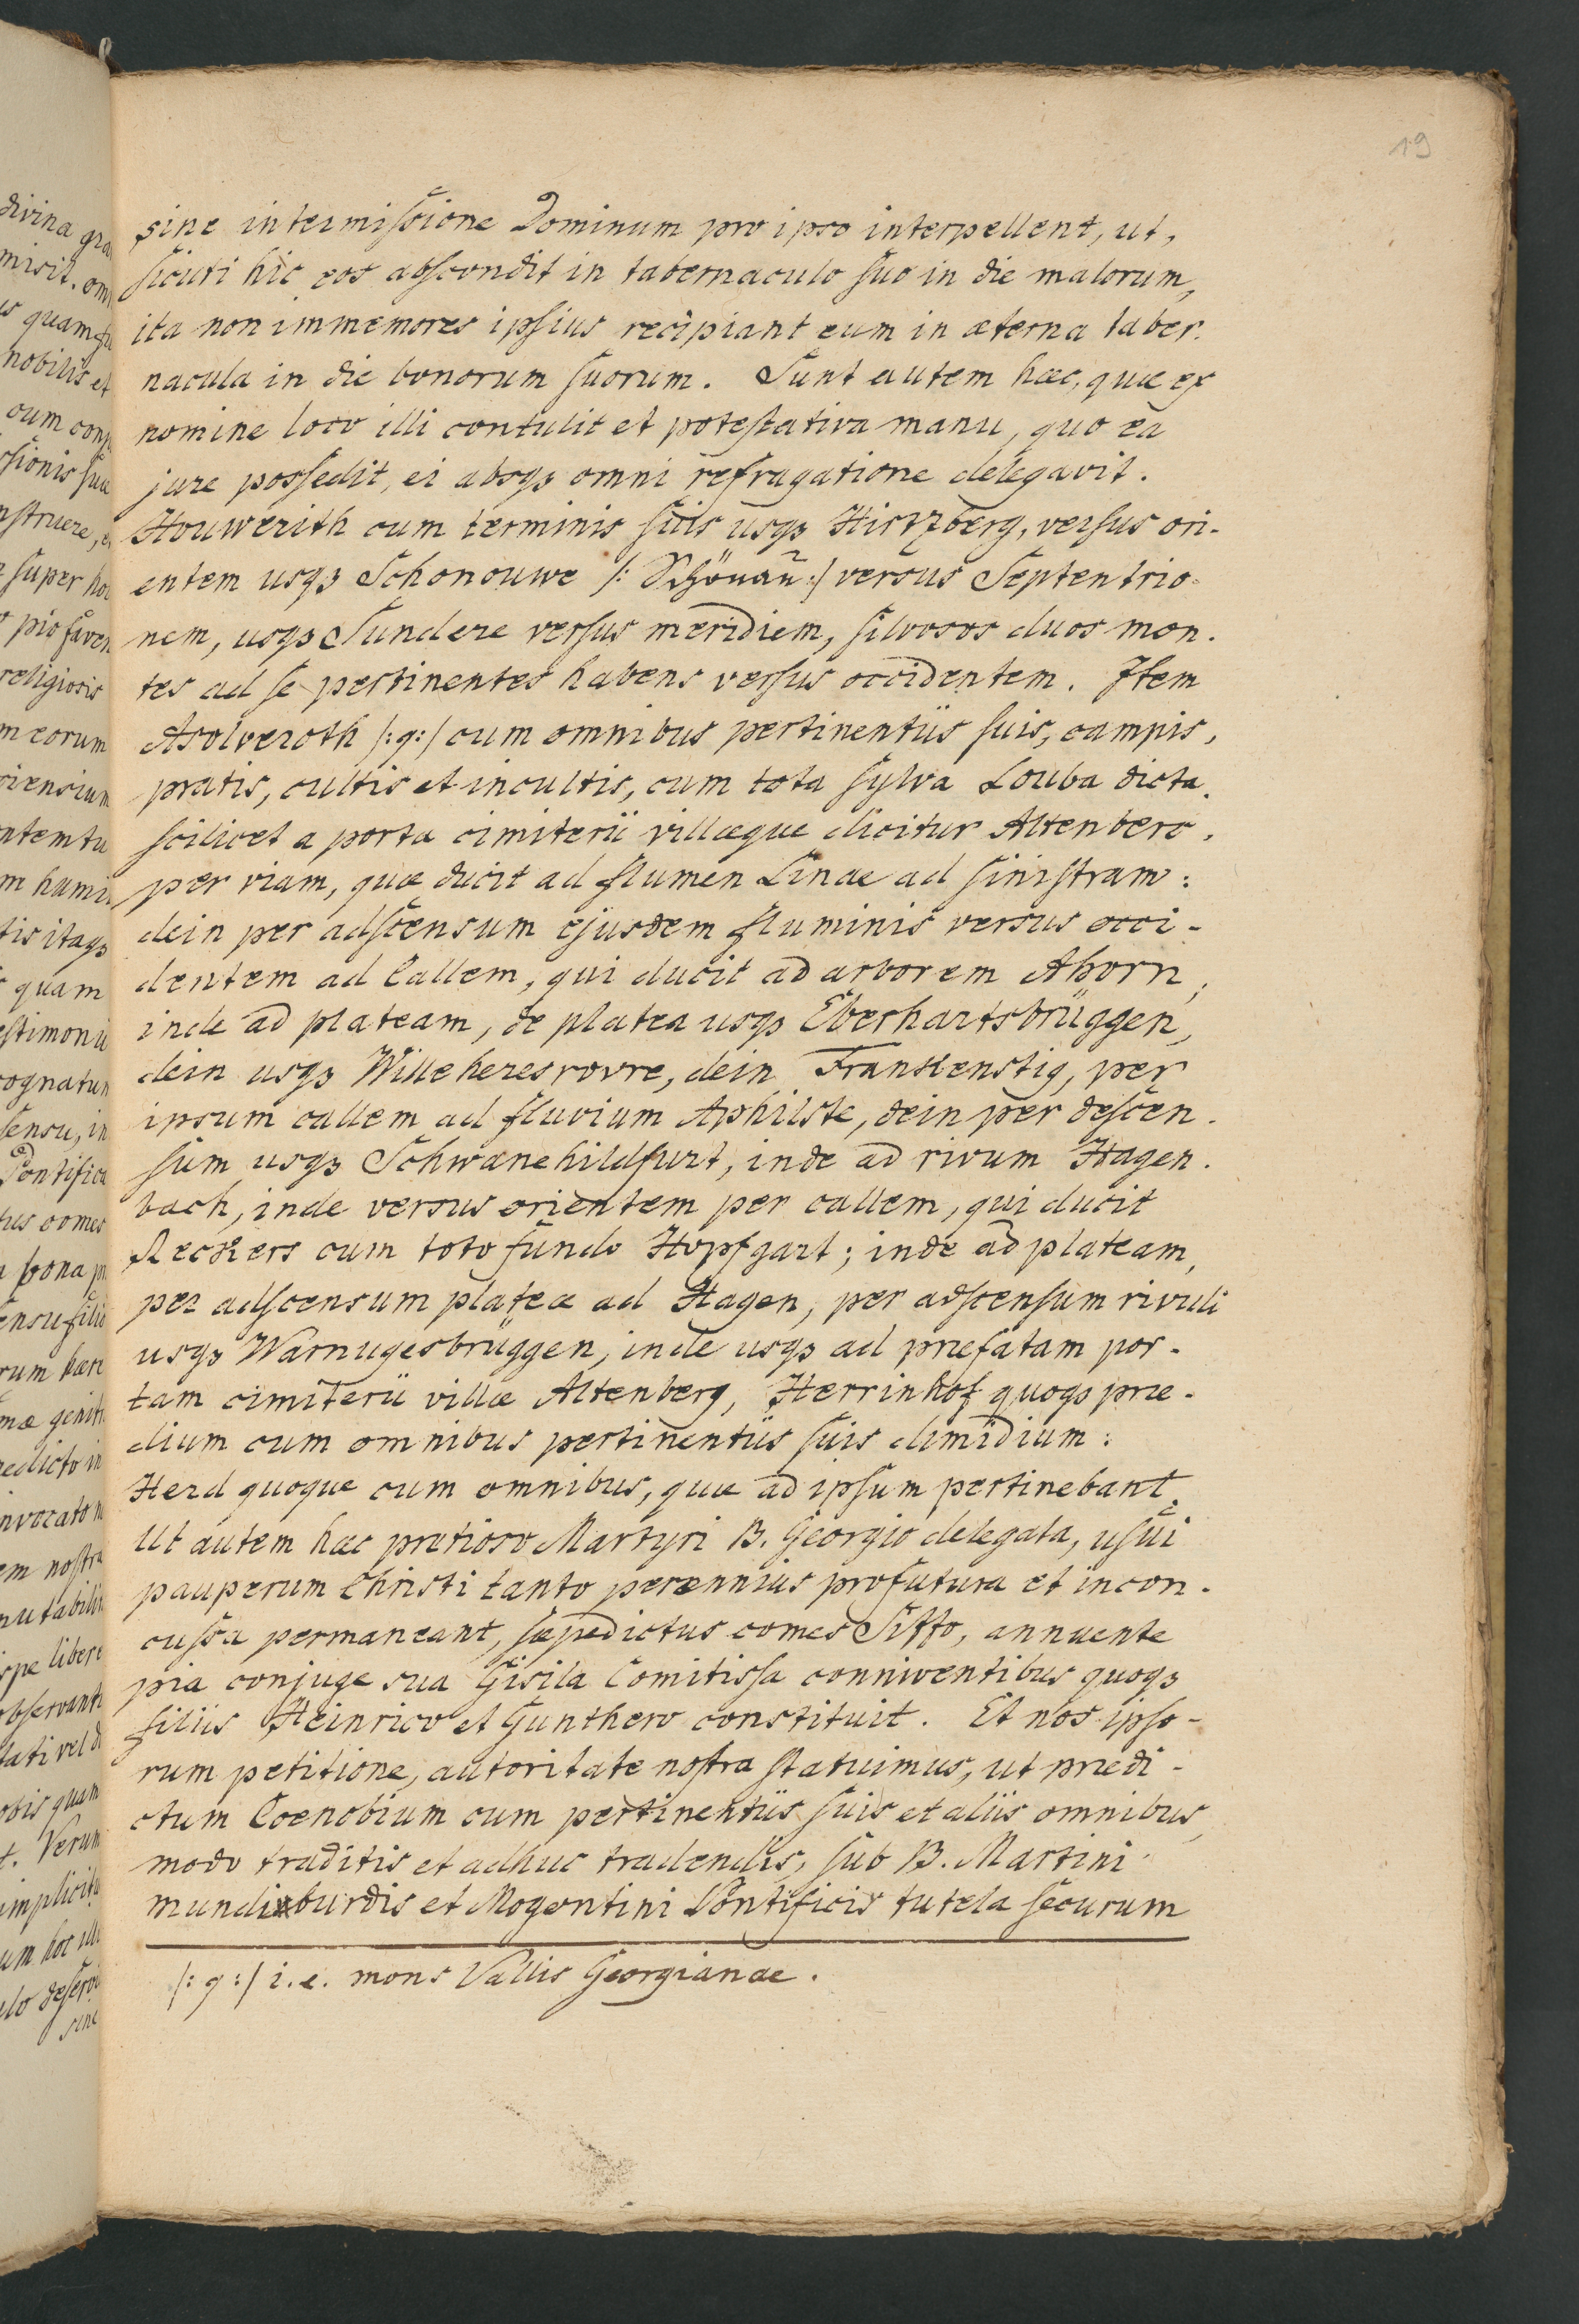 19
sine intermiſsione Dominum pro ipso interpellent, ut,
ſicuti hic eos abſcondit in tabernaculo ſuo in die malorum,
ita non immemores ipſius recipiant eum in æterna taber.
nacula in die bonorum ſuorum. Sunt autem hæc, quæ ex
nomine loco illi contulit et poteſtativa manu, quo ea
jure posſedit, ei absqꝫ omni refragatione delegavit.
Houwerith cum terminis ſuis usqꝫ Hirtzberg, verſus ori-
entem usqꝫ Schonouwe /: Schönau :/ versus Septentrio-
nem, usqꝫ Sundere verſus meridiem, ſilvosos duos mon.
tes ad ſe pertinentes habens verſus occidentem. Item
Asolveroth /:q:/ cum omnibus pertinentiis ſuis, campis,
pratis, cultis et incultis, cum tota ſylva Louba dicta,
ſcilicet a porta cimiterii villæque dicitur Altenberc,
per viam, quæ ducit ad flumen Linae ad ſiniſtram:
dein per adſcensum ejusdem fluminis versus occi-
dentem ad Callem, qui ducit ad arborem Ahorn,
inde ad plateam, de platea usqꝫ Eberhartsbrüggen,
dein usqꝫ Willeheresrovre, dein Frankenstig, per
ipsum callem ad fluvium Aphilste, dein per deſcen.
ſum usqꝫ Schwanehildfurt, inde ad rivum Hagen.
bach, inde versus orientem per callem, qui ducit
Reckers cum toto fundo Hopfgart; inde ad plateam,
per adſcensum plateæ ad Hagen, per adſcenſum rivuli
usqꝫ Warnugesbrüggen, inde usqꝫ ad præfatam por-
tam cimiterii villæ Altenberg, Herrinhof quoqꝫ præ-
dium cum omnibus pertinentiis ſuis dimidium:
Herd quoque cum omnibus, quæ ad ipſum pertinebant.
Ut autem hæc pretioso Martyri B. Georgio delegata, uſui
pauperum Christi tanto perennius profutura et incon-
cuſsa permaneant, ſæpedictus comes Siffo, annuente
pia conjuge sua Gisila Comitisſa conniventibus quoqꝫ
filiis Heinrico et Gunthero constituit. Et nos ipſo-
rum petitione, autoritate noſtra ſtatuimus, ut prædi-
ctum Coenobium cum pertinentiis ſuis et aliis omnibus,
modo traditis et adhuc tradendis, ſub B. Martini
mundiburdis et Mogontini Pontificis tutela ſecurum
/: q :/ i. e. mons Vallis Georgianae.